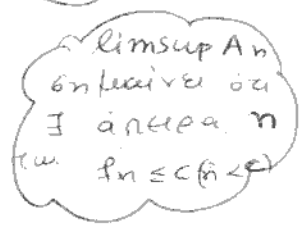 limsup An
σημαίνει ότι
∃ άπειρα n
τ.ω. fn ≤ c (ή < c)